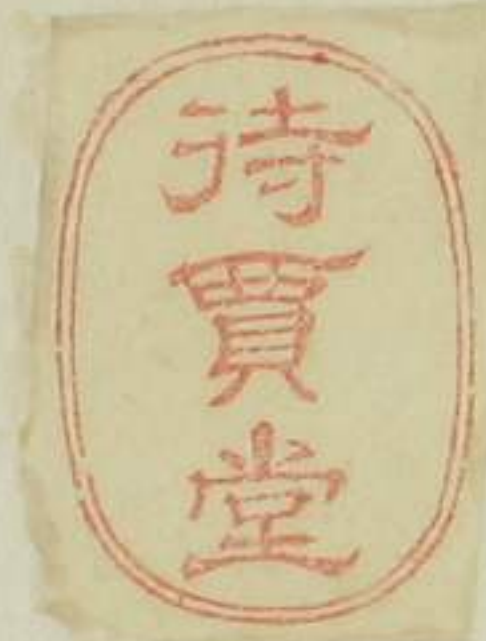 待
賈
堂